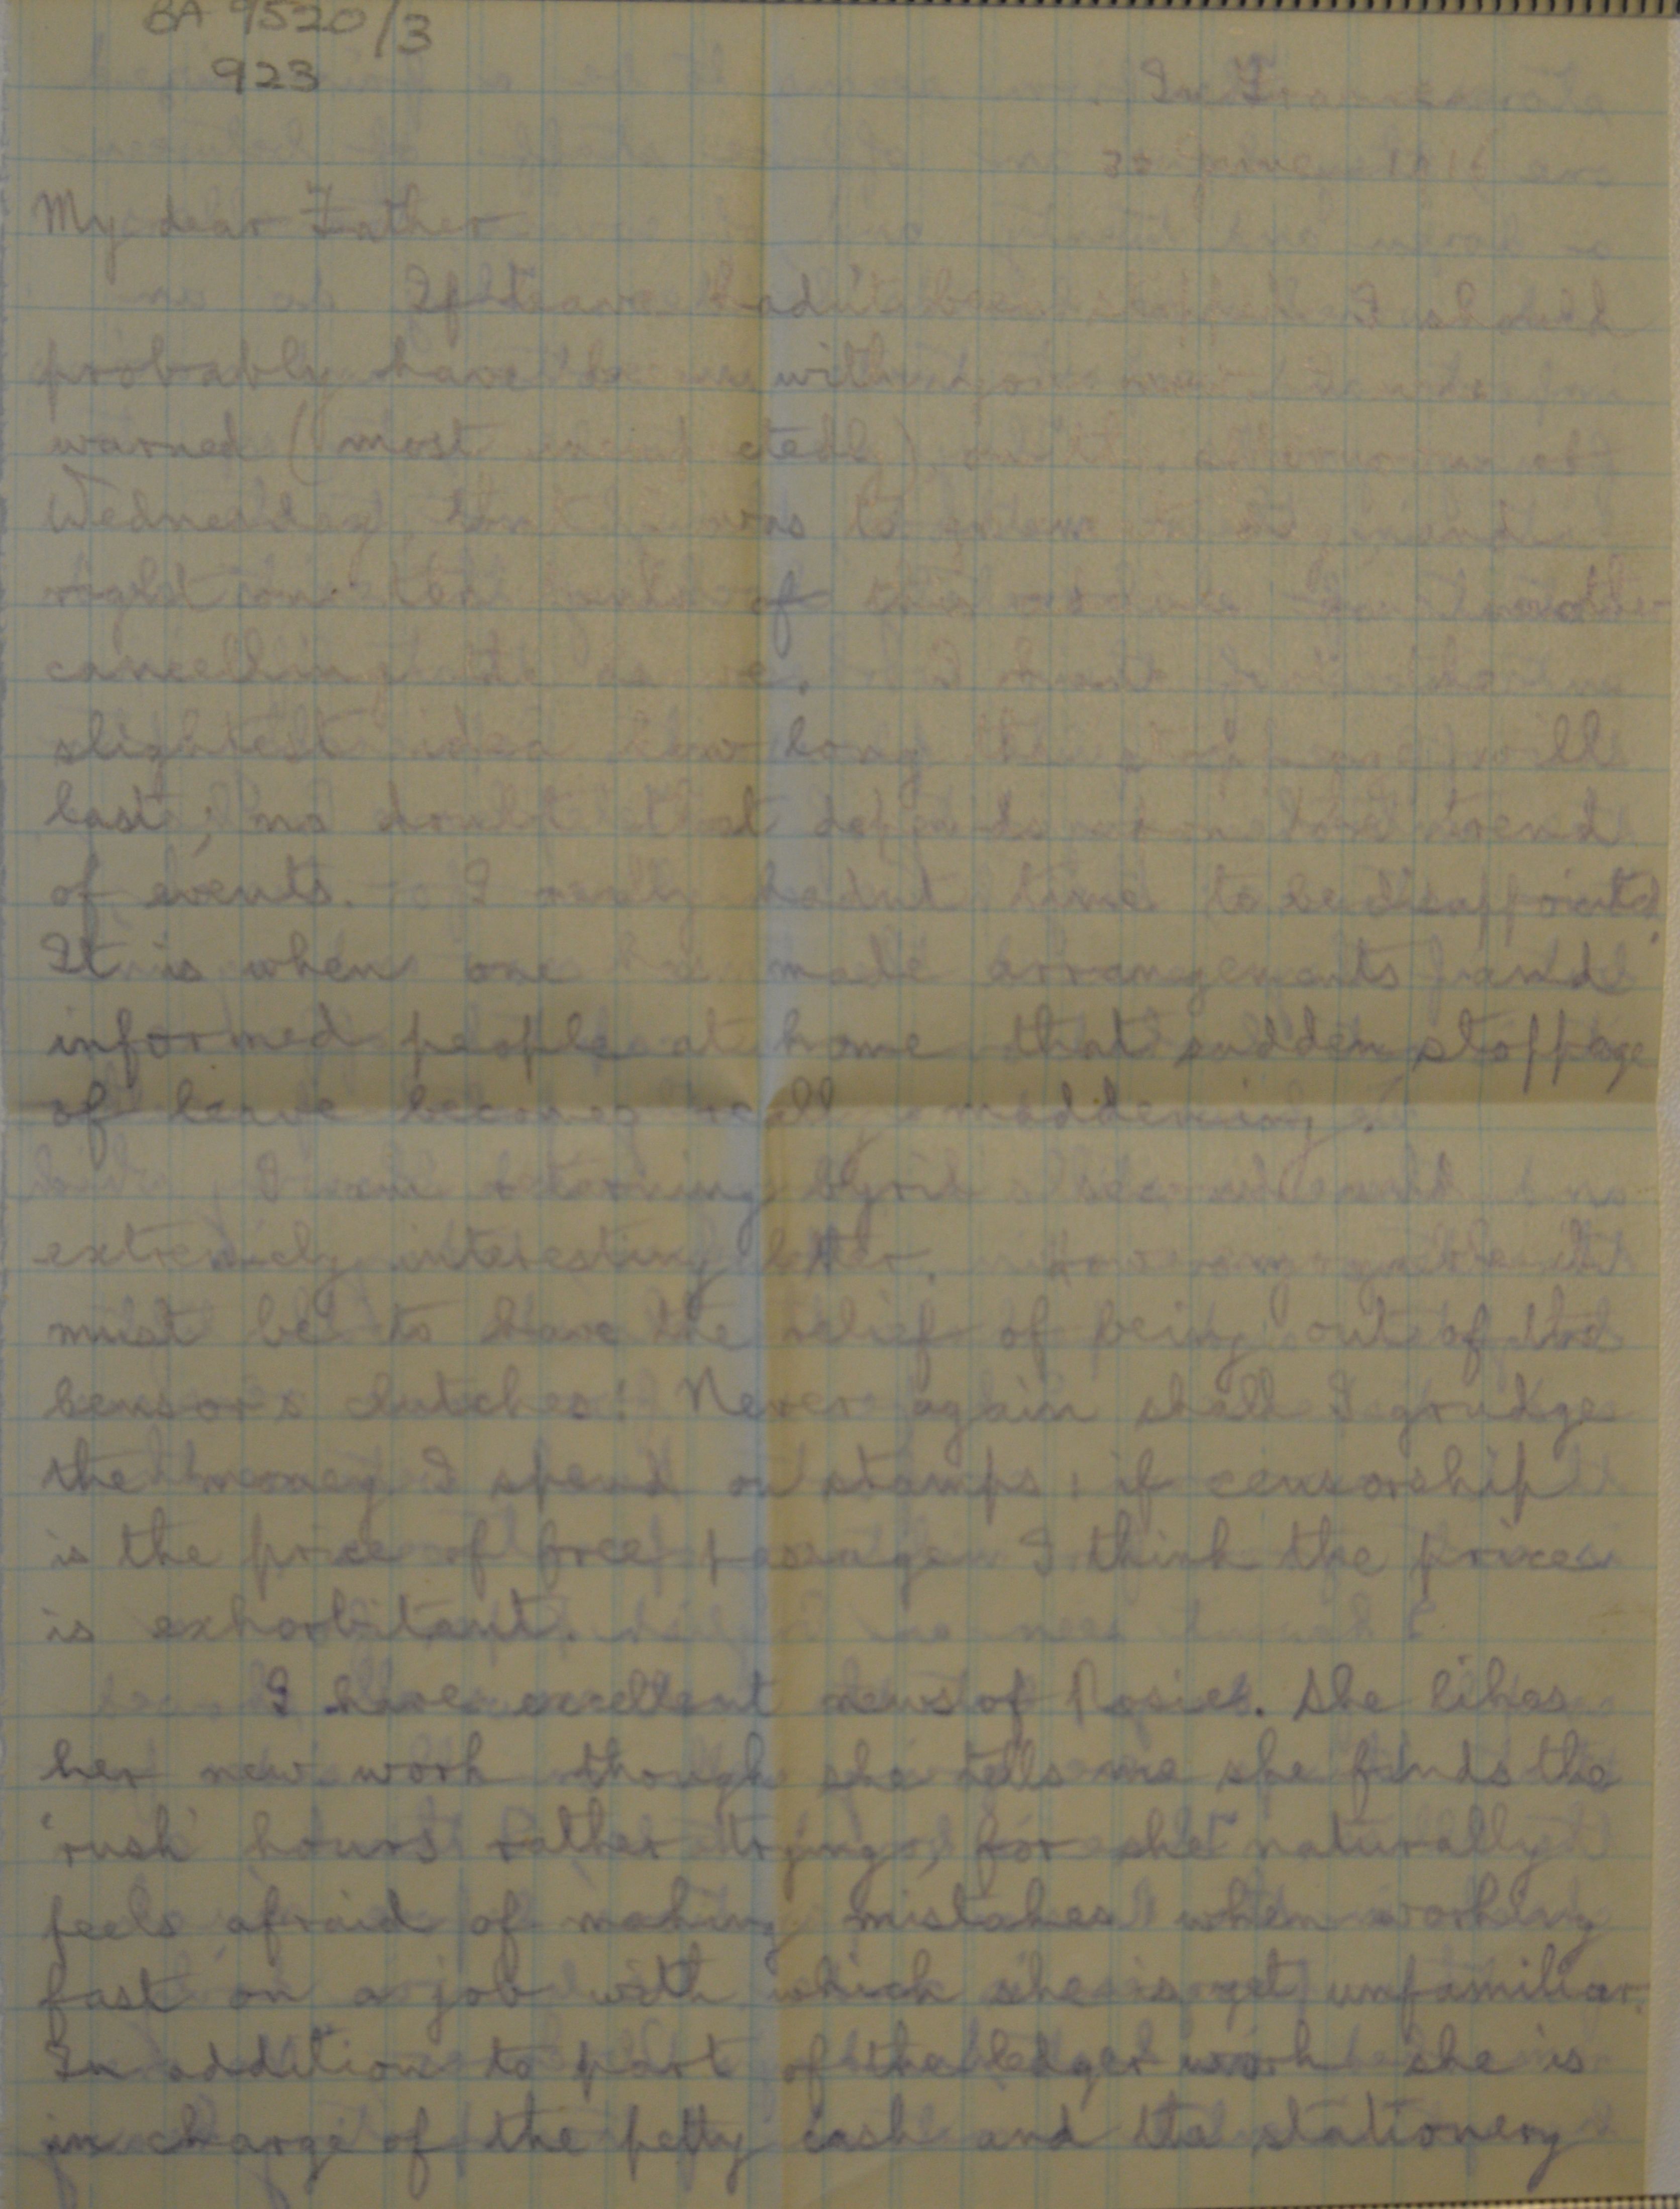 BA 9520/3
923
In France
30 1916
My dear Father
If leave hadn't been stopped I should
probably have been with you now. I was
warned (most unexpectedly) on the afternoon of
Wednesday that I was to go
right on the of this came another
cancelling the leave. I haven't the
slightest idea how long the stoppage will
last; no doubt that depends upon the trend
of events. I really hadn't time to be disappointed.
It is when one has made arrangements and
informed people at home that sudden stoppage
of leave becomes really maddening.
I am returning Cyril's and
extremely interesting letter. How enjoyable it
must be to have the relief of being out of the
censor's clutches! Never again shall I grudge
the money I spend on stamps; if censorship
is the price of free passage I think the price
is exhorbitant.
I have excellent news of Rosie. She likes
her new work though she tells me she finds the
'rush' hours rather trying, for she naturally
feels afraid of making mistakes when working
fast on a job with which she is yet unfamiliar.
In addition to part of the ledger work she is
in charge of the petty cash and the stationery